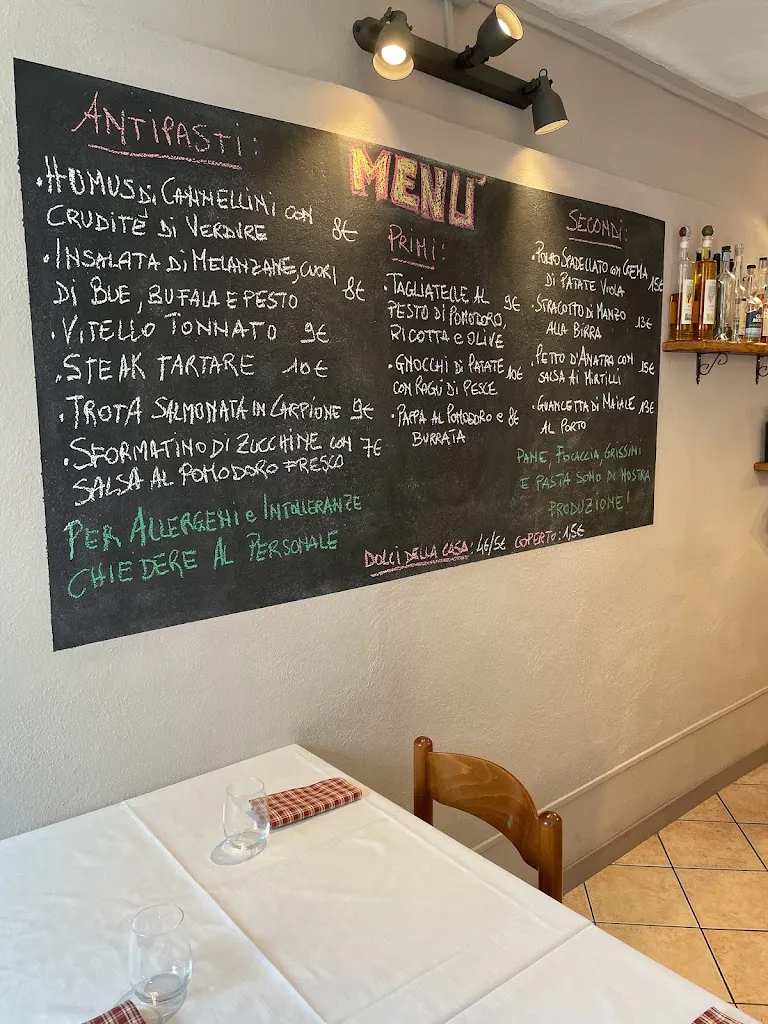 MENÙ
ANTIPASTI:
• HUMUS DI CANNELLINI CON
CRUDITÈ DI VERDURE 8€
• INSALATA DI MELANZANE, CUORI
DI BUE, BUFALA E PESTO 8€
• VITELLO TONNATO 9€
• STEAK TARTARE 10€
• TROTA SALMONATA IN CARPIONE 9€
• SFORMATINO DI ZUCCHINE CON 7€
SALSA AL POMODORO FRESCO
PER ALLERGENI e INTOLLERANZE
CHIEDERE AL PERSONALE
PRIMI:
• TAGLIATELLE AL 9€
PESTO DI POMODORO,
RICOTTA e OLIVE
• GNOCCHI DI PATATE 10€
CON RAGÙ DI PESCE
• PAPPA AL POMODORO e 8€
BURRATA
SECONDI:
• POLPO SPADELLATO CON CREMA 15€
DI PATATE VIOLA
• STRACOTTO DI MANZO 13€
ALLA BIRRA
• PETTO D'ANATRA CON 15€
SALSA AI MIRTILLI
• GUANCETTA DI MAIALE 13€
AL PORTO
PANE, FOCACCIA, GRISSINI
E PASTA SONO DI NOSTRA
PRODUZIONE!
DOLCI DELLA CASA: 4€/5€ COPERTO: 1,5€